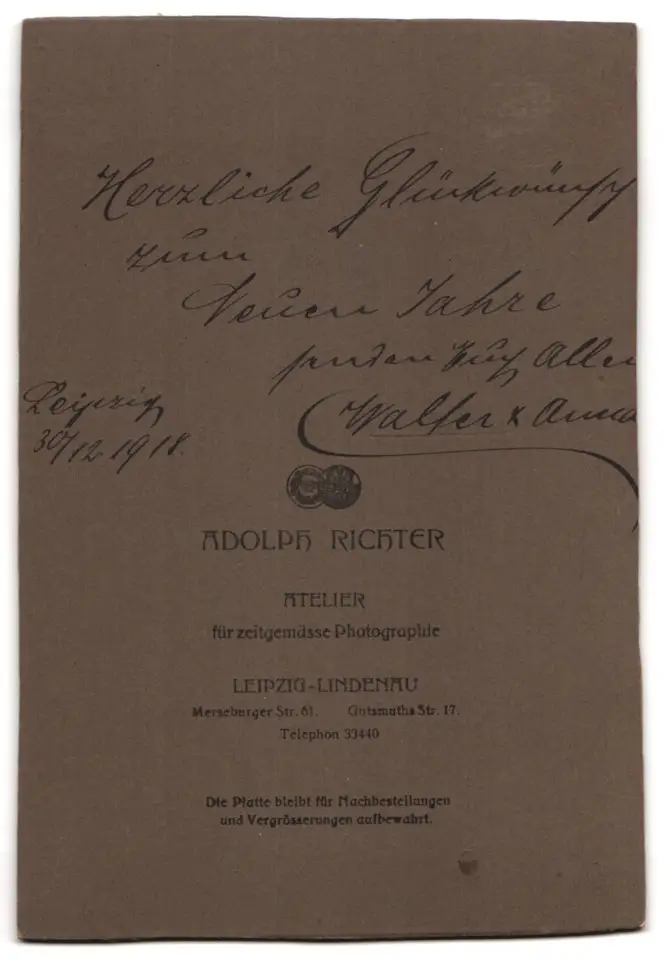 Herzliche Glückwünsch
zum
Neuen Jahre
senden Euch Allen
Walter & Anna
Leipzig
30/12. 1918.
ADOLPH RICHTER
ATELIER
für zeitgemässe Photographie
LEIPZIG-LINDENAU
Merseburger Str. 61. Gutsmuths Str. 17.
Telephon 33440
Die Platte bleibt für Nachbestellungen
und Vergrösserungen aufbewahrt.